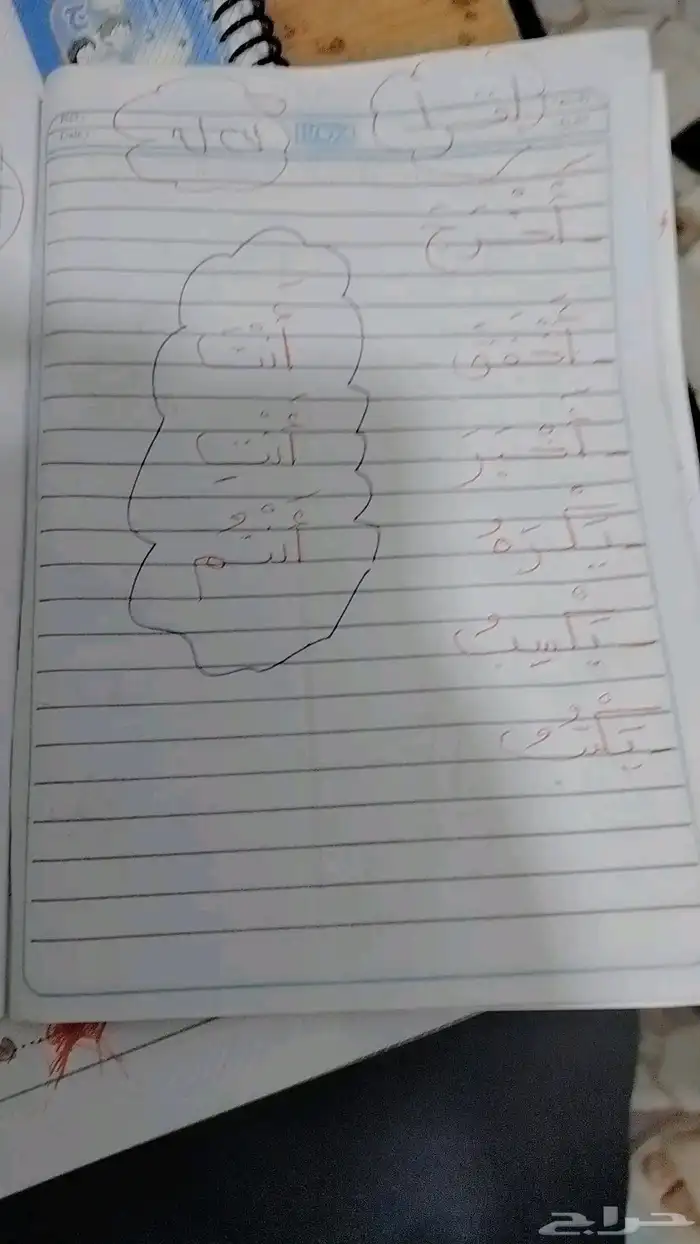 إقرأ
أَخْرَجَ
أَخْفَقَ
أَخْبَرَ
يَكْرَهُ
يَكْسِبُ
يَكْتُبُ
أَنْتَ
أَنْتِ
أَنْتُم
حراج